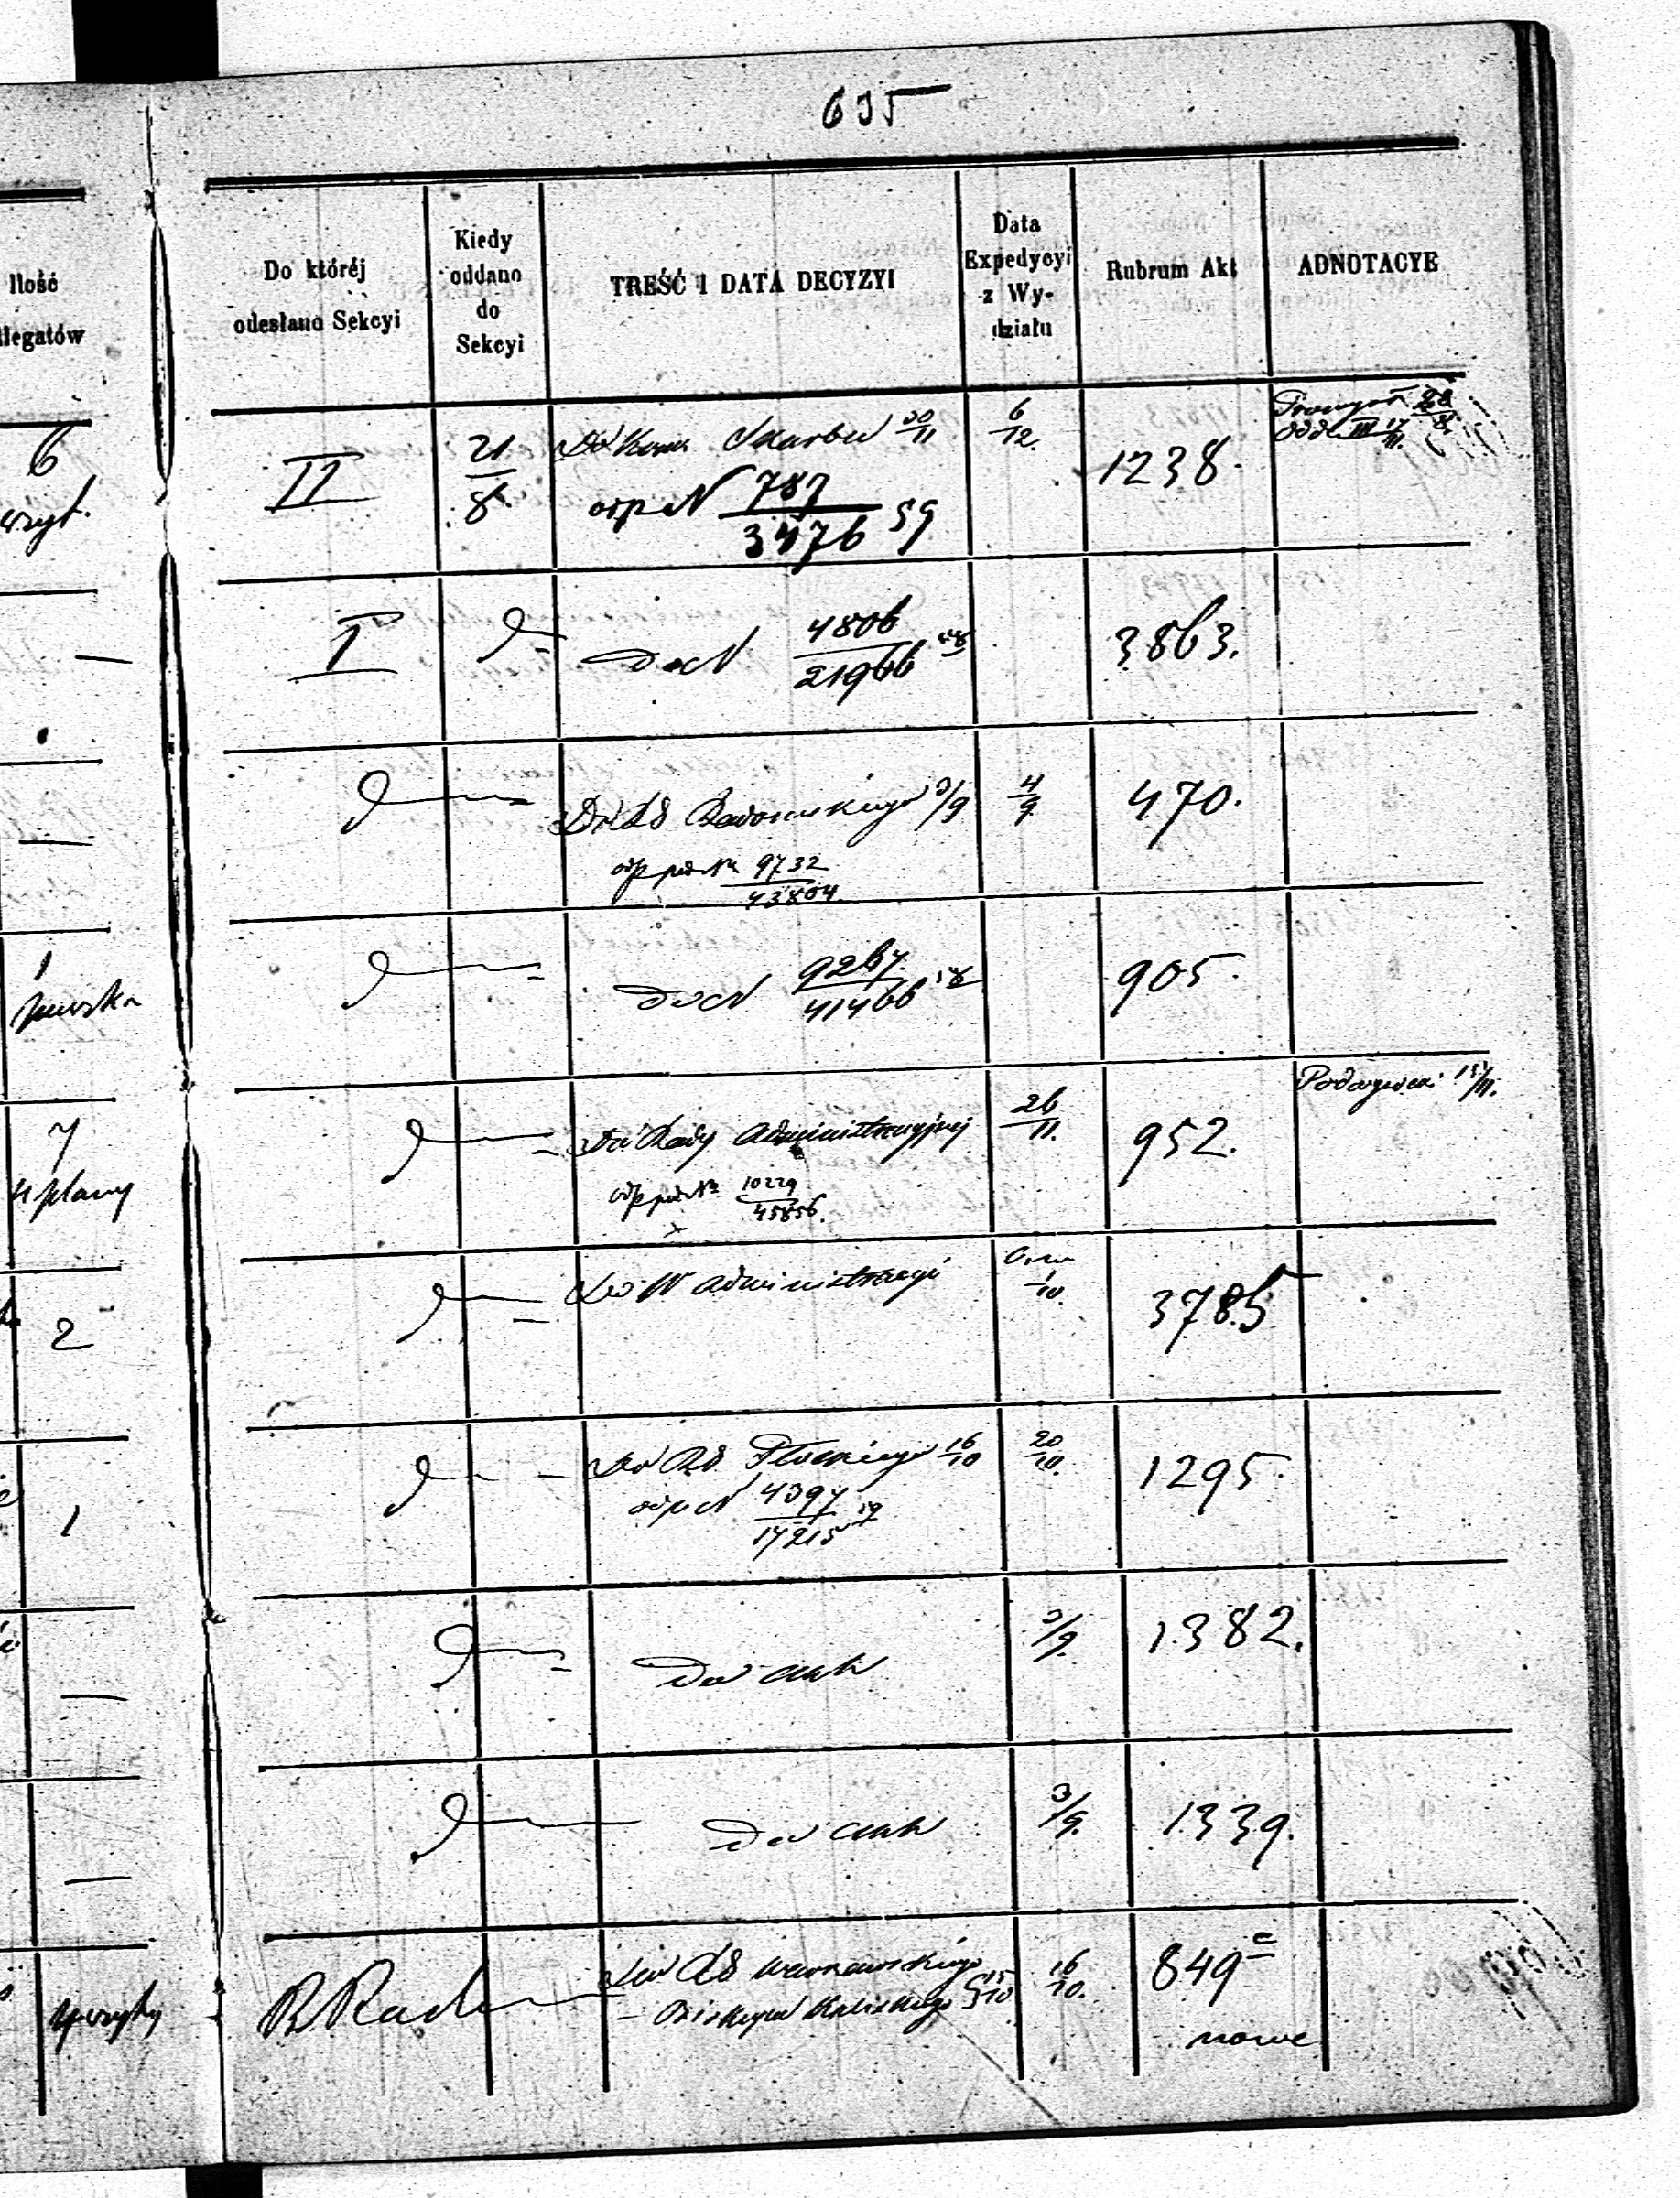 635
Ilość
llegatów
Do któréj
odesłano Sekcyi
Kiedy
oddano
do
Sekcyi
TREŚĆ I DATA DECYZYI
Data
Expedycyi
z Wy-
działu
Rubrum Akt
ADNOTACYE
6
II
21/8
Do Kom Skarbu 30/11
odp N 787/3476 59
6/12.
1238.
I
Do N 4806/21966 58
3863.
Do Rd Radomskiego 3/9
odp pod Nr 9732/43804.
4/9
470.
1
Do N 9267/41466 58
905.
7
4 plany
Do Rady Administracyjnej
odp pod Nr 10229/45856.
26/11.
952.
15/11.
2
Do W Administracyi
1/10.
3785
1
Do Rd. Płockiego 16/10
odp N 4397/17215 59
20/10.
1295.
Do akt
3/9.
1382.
Do akt
3/9.
1339.
R Rad
Do Rd Warszawskiego
Kaliskiego 15/10
16/10.
849 c
nowe